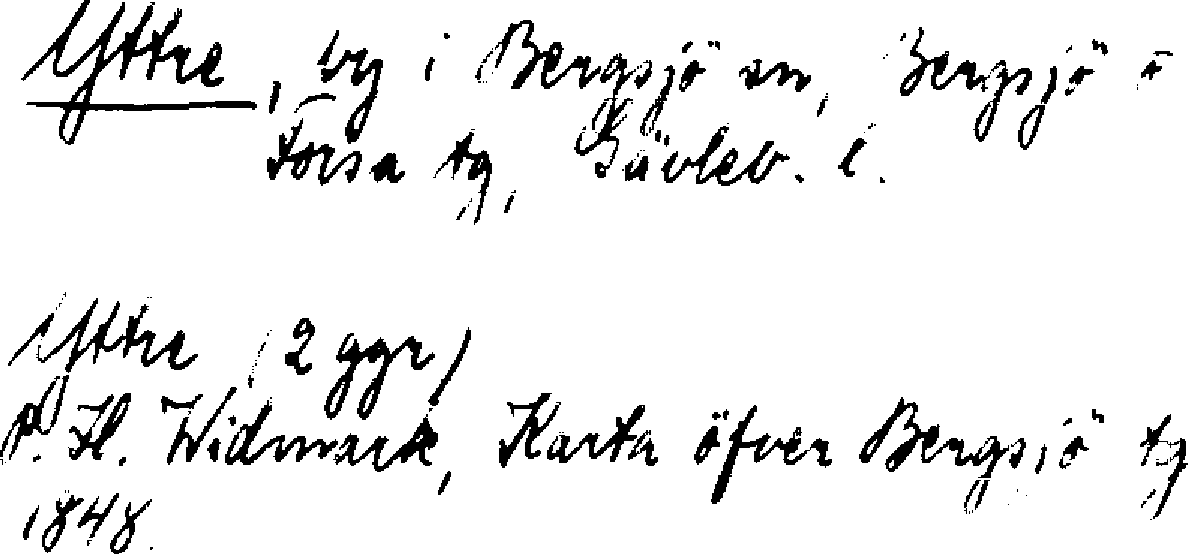 Yttre, by i Bergsjö sn, Bergsjö o
Forsa tg, Gävleb. l.
Yttre (2 ggr)
P. H. Widmark, Karta öfver Bergsjö tg
1848.